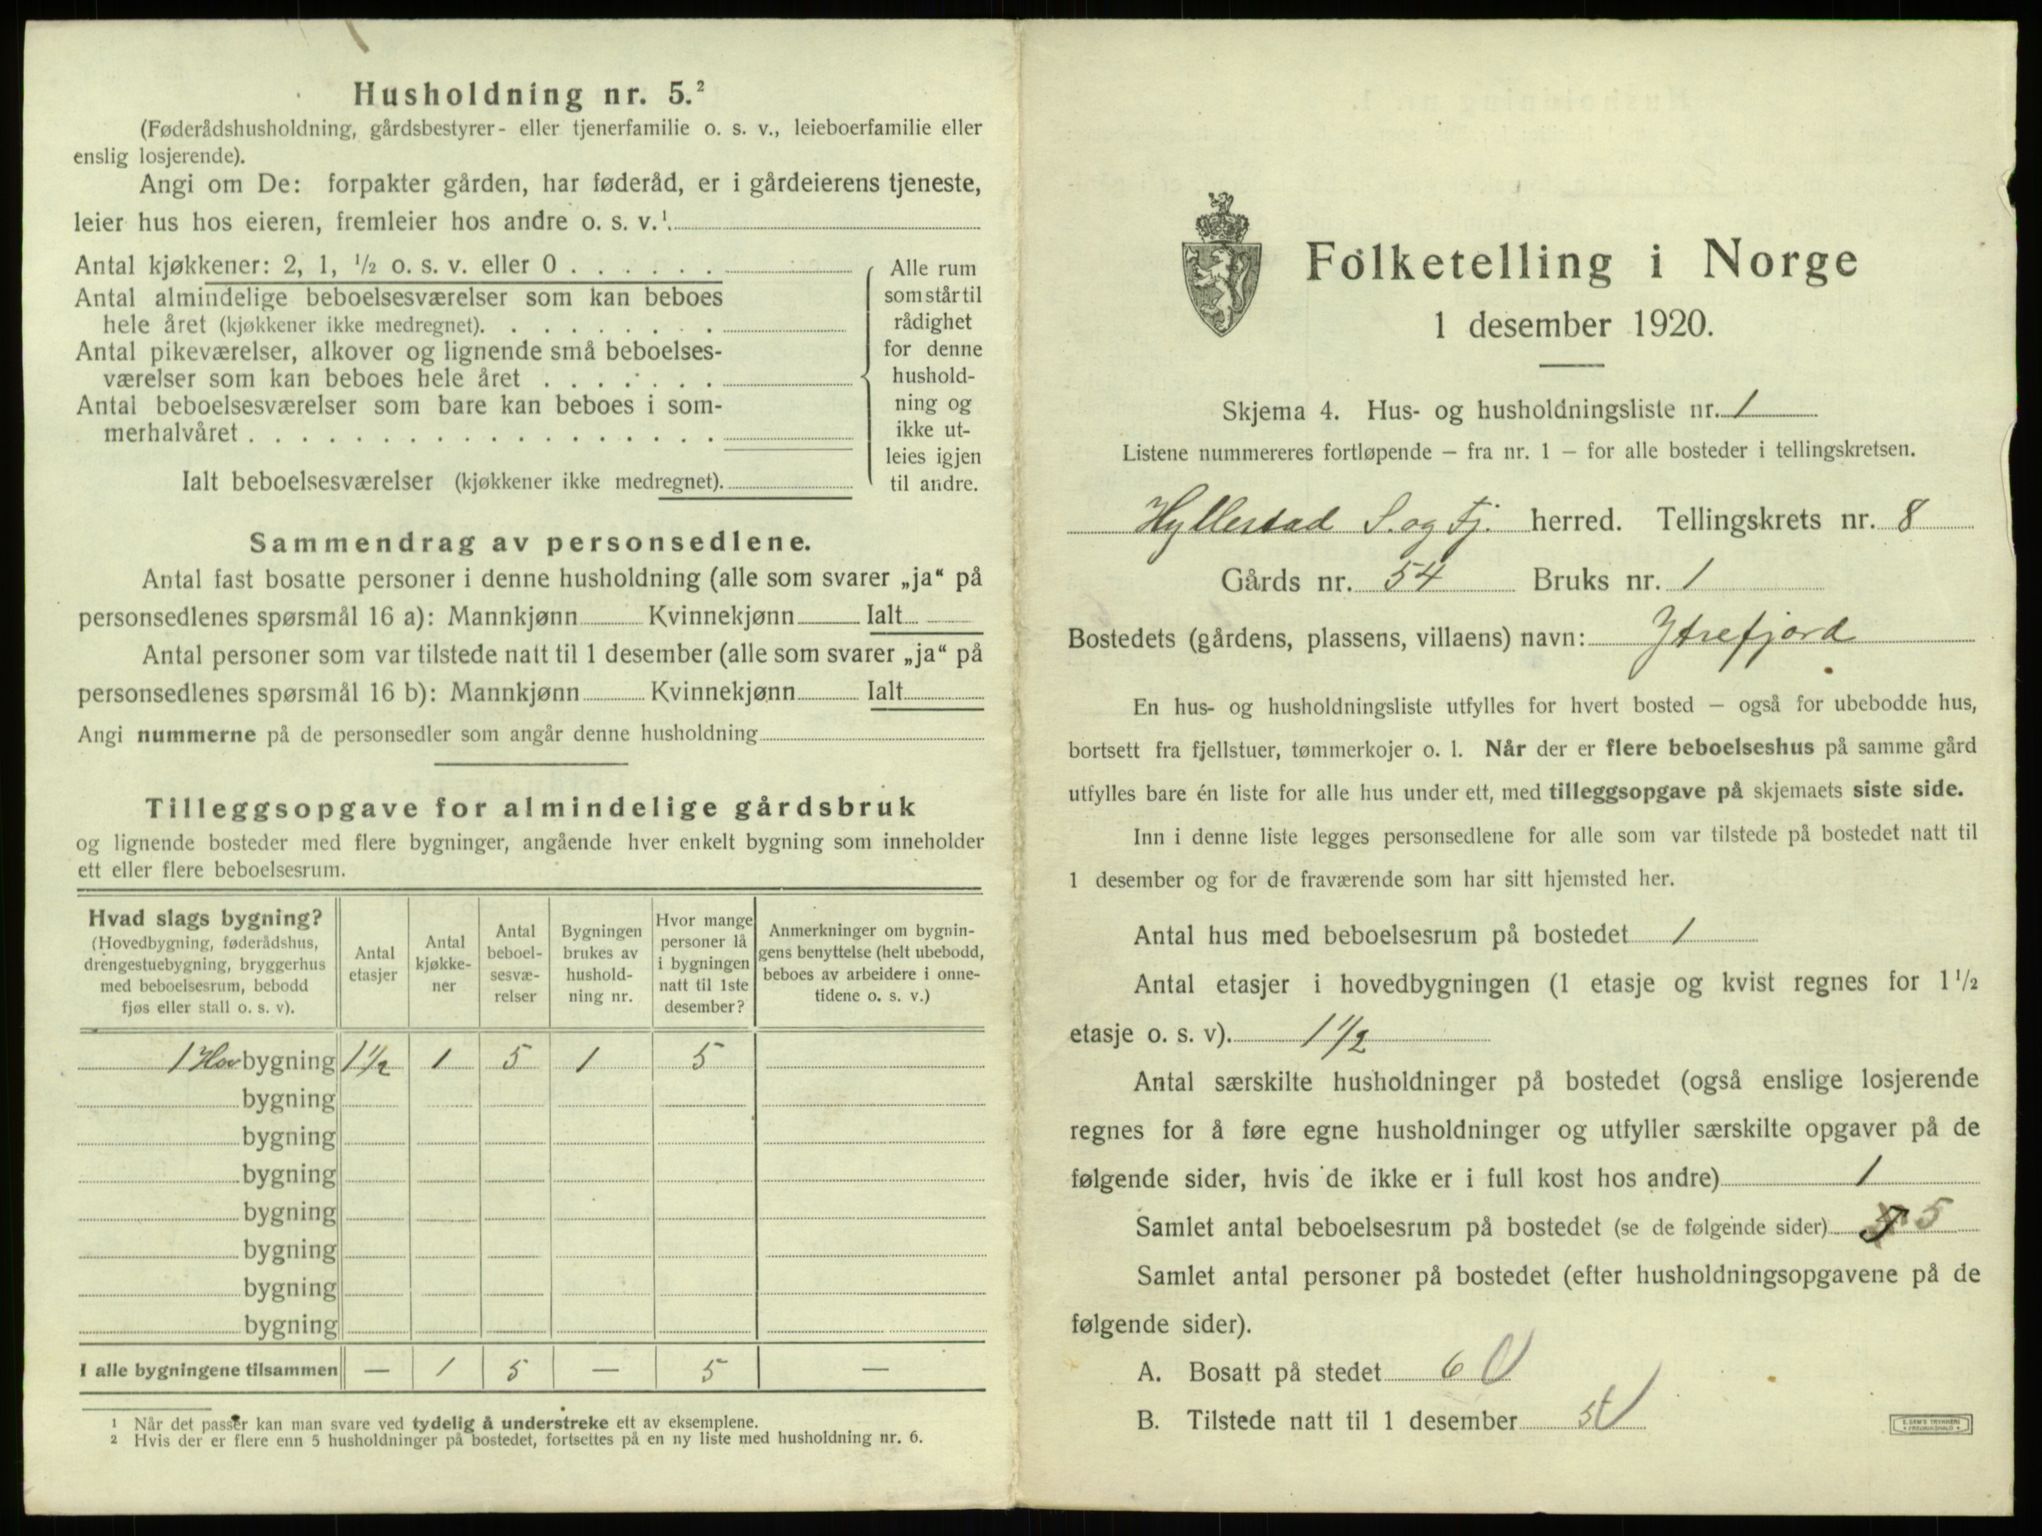 Husholdning nr. 5.²
(Føderådshusholdning, gårdsbestyrer- eller tjenerfamilie o. s. v., leieboerfamilie eller
enslig losjerende).
Angi om De: forpakter gården, har føderåd, er i gårdeierens tjeneste,
leier hus hos eieren, fremleier hos andre o. s. v.¹
Antal kjøkkener: 2, 1, ½ o. s. v. eller 0 . . . . . .
Antal almindelige beboelsesværelser som kan beboes
hele året (kjøkkener ikke medregnet). . . . . . . . .
Antal pikeværelser, alkover og lignende små beboelses-
værelser som kan beboes hele året . . . . . . .
Antal beboelsesværelser som bare kan beboes i som-
merhalvåret . . . . . . . . . . . . . . . . . .
Ialt beboelsesværelser (kjøkkener ikke medregnet).
Alle rum
som står til
rådighet
for denne
hushold-
ning og
ikke ut-
leies igjen
til andre.
Sammendrag av personsedlene.
Antal fast bosatte personer i denne husholdning (alle som svarer „ja“ på
personsedlenes spørsmål 16 a): Mannkjønn Kvinnekjønn Ialt
Antal personer som var tilstede natt til 1 desember (alle som svarer „ja“ på
personsedlenes spørsmål 16 b): Mannkjønn Kvinnekjønn Ialt
Angi nummerne på de personsedler som angår denne husholdning
Tilleggsopgave for almindelige gårdsbruk
og lignende bosteder med flere bygninger, angående hver enkelt bygning som inneholder
ett eller flere beboelsesrum.
Hvad slags bygning?
(Hovedbygning, føderådshus,
drengestuebygning, bryggerhus
med beboelsesrum, bebodd
fjøs eller stall o. s. v).
Antal
etasjer
Antal
kjøkke-
ner
Antal
beboel-
sesvæ-
relser
Bygningen
brukes av
hushold-
ning nr.
Hvor mange
personer lå
i bygningen
natt til 1ste
desember?
Anmerkninger om bygnin-
gens benyttelse (helt ubebodd,
beboes av arbeidere i onne-
tidene o. s. v.)
1 Hov bygning 1½ 1 5 1 5
bygning
bygning
bygning
bygning
bygning
bygning
bygning
I alle bygningene tilsammen — 1 5 — 5 —
¹ Når det passer kan man svare ved tydelig å understreke ett av eksemplene.
² Hvis der er flere enn 5 husholdninger på bostedet, fortsettes på en ny liste med husholdning nr. 6.
Folketelling i Norge
1 desember 1920.
Skjema 4. Hus- og husholdningsliste nr. 1
Listene nummereres fortløpende – fra nr. 1 – for alle bosteder i tellingskretsen.
Hyllestad S. og Fj. herred. Tellingskrets nr. 8
Gårds nr. 54 Bruks nr. 1
Bostedets (gårdens, plassens, villaens) navn: Ytrefjord
En hus- og husholdningsliste utfylles for hvert bosted – også for ubebodde hus,
bortsett fra fjellstuer, tømmerkojer o. l. Når der er flere beboelseshus på samme gård
utfylles bare én liste for alle hus under ett, med tilleggsopgave på skjemaets siste side.
Inn i denne liste legges personsedlene for alle som var tilstede på bostedet natt til
1 desember og for de fraværende som har sitt hjemsted her.
Antal hus med beboelsesrum på bostedet 1
Antal etasjer i hovedbygningen (1 etasje og kvist regnes for 1½
etasje o. s. v). 1½
Antal særskilte husholdninger på bostedet (også enslige losjerende
regnes for å føre egne husholdninger og utfyller særskilte opgaver på de
følgende sider, hvis de ikke er i full kost hos andre) 1
Samlet antal beboelsesrum på bostedet (se de følgende sider) 5
Samlet antal personer på bostedet (efter husholdningsopgavene på de
følgende sider).
A. Bosatt på stedet 6
B. Tilstede natt til 1 desember 5